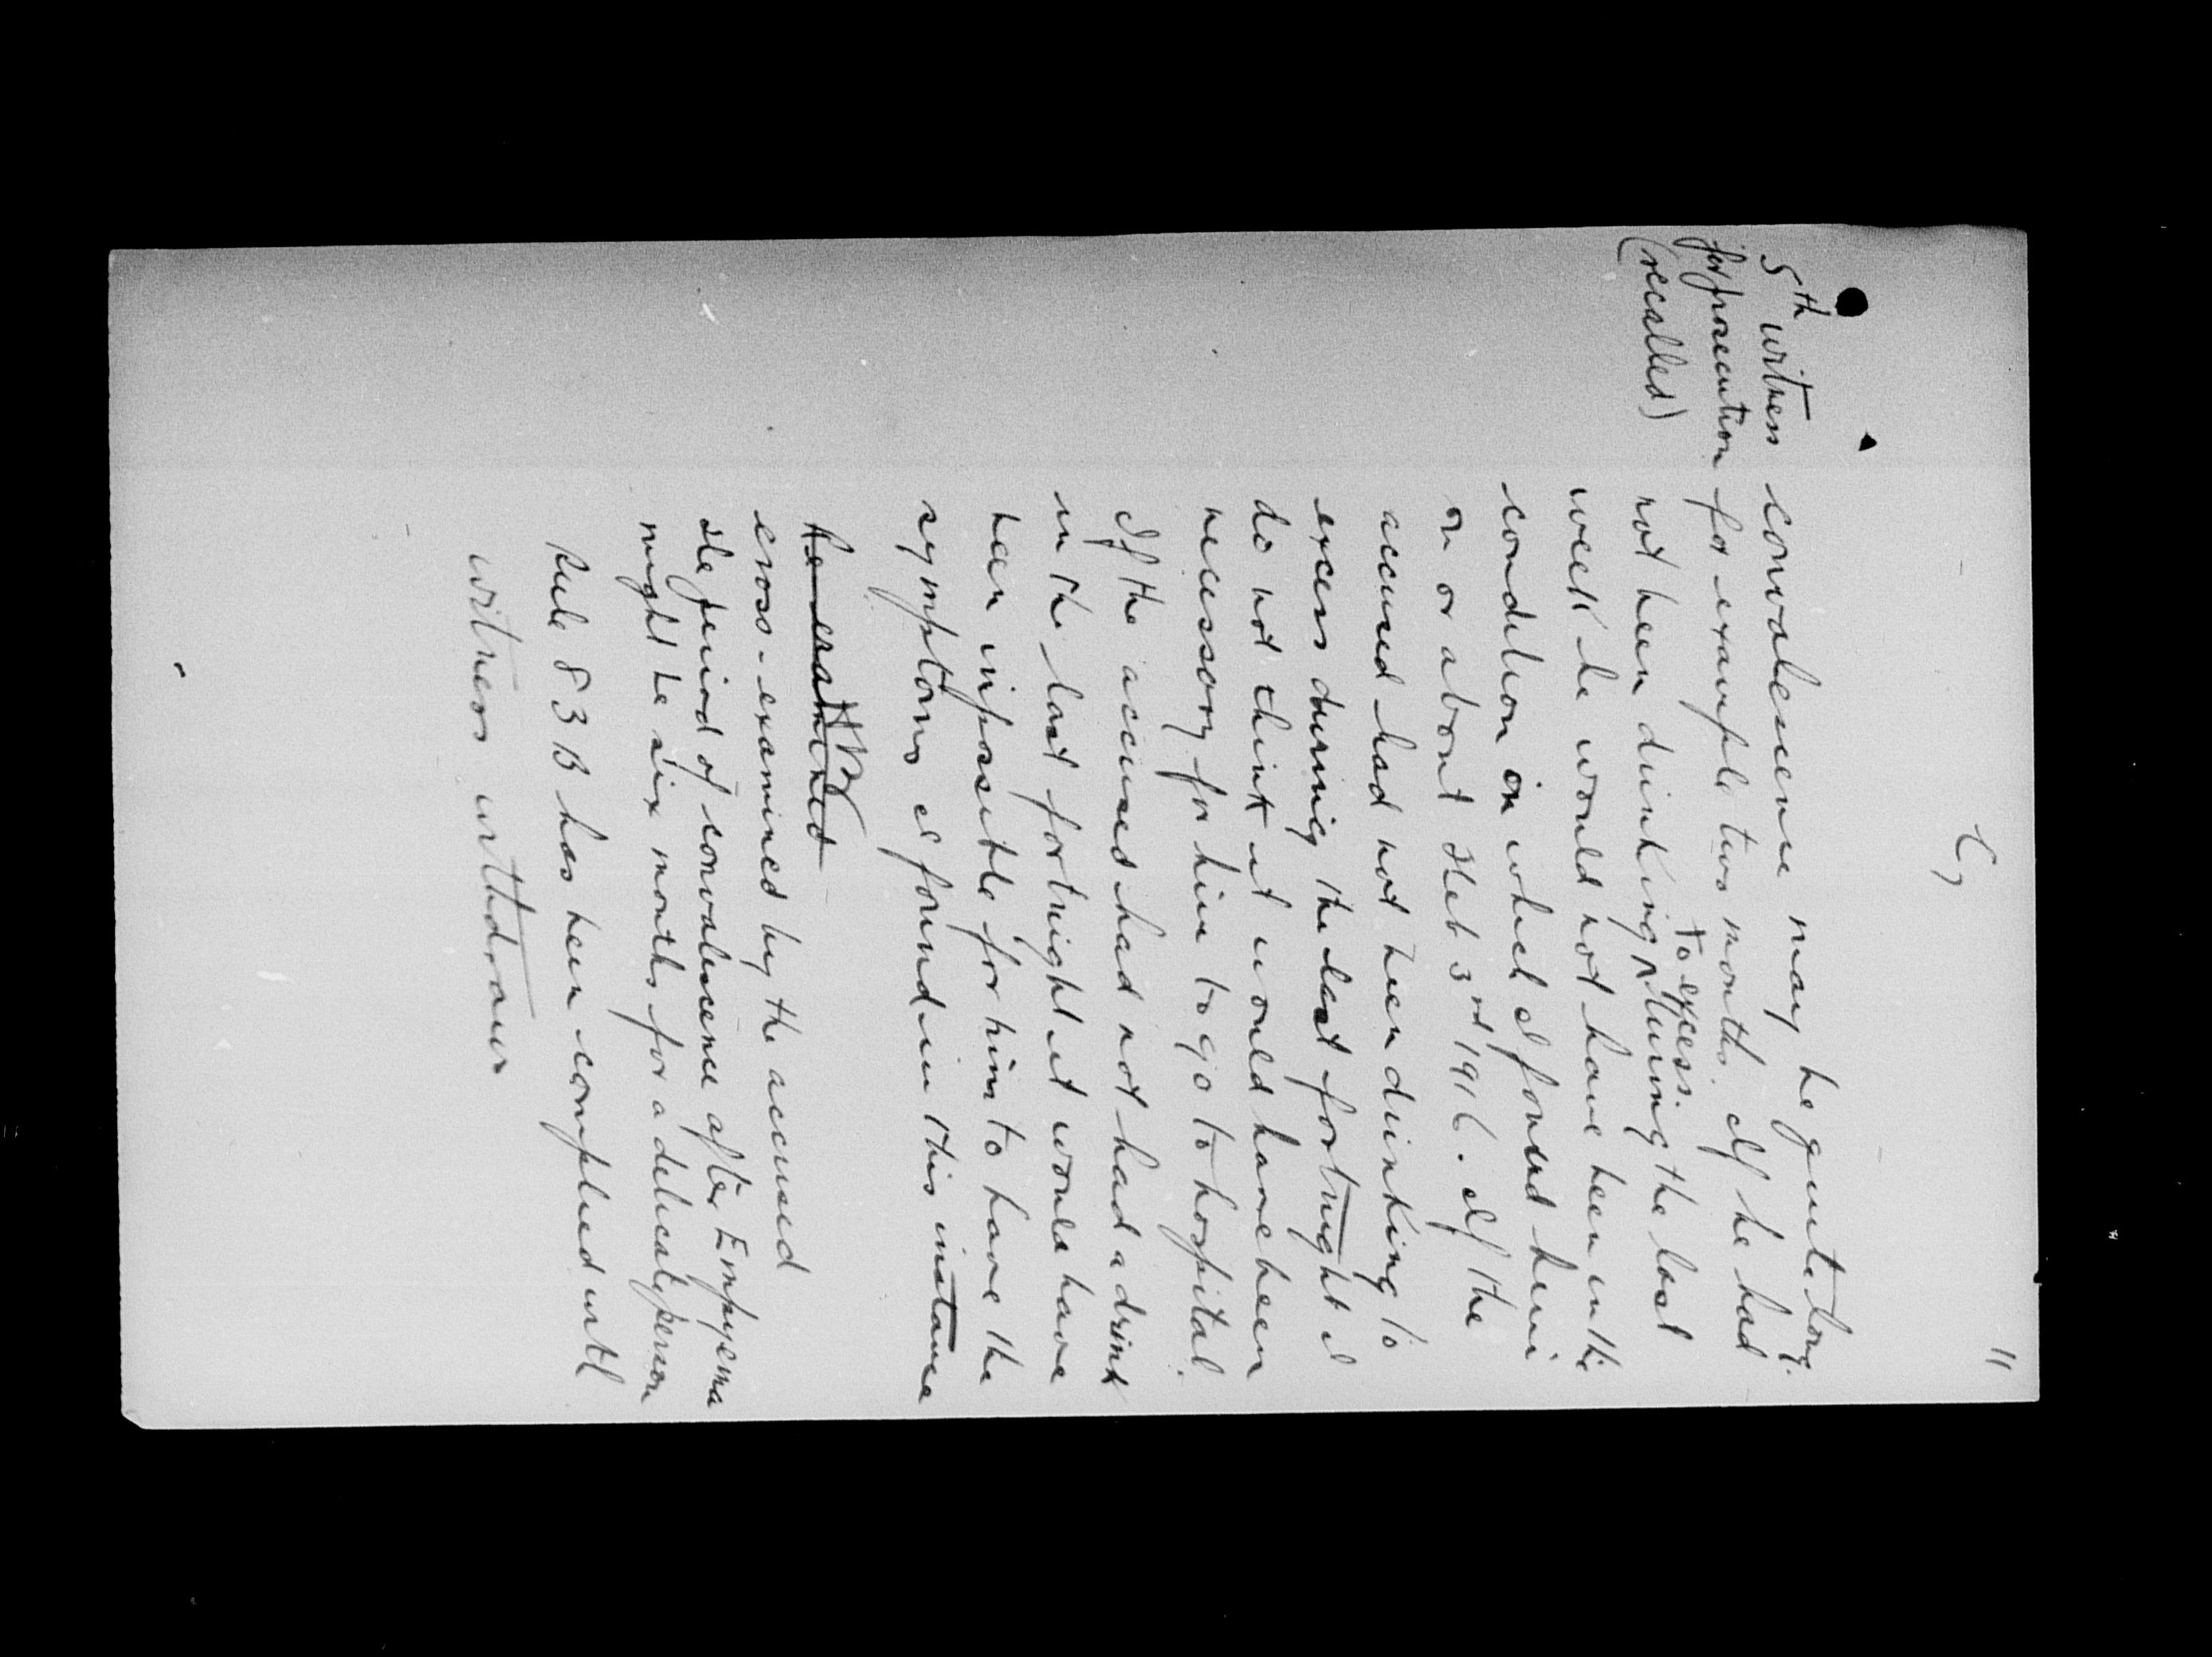 11
5th witness
for prosecution
(recalled)
convalescence may be quite long.
for example two months. If he had
to excess.
not been drinking ^ during the last
week he would not have been in the
condition in which I found him
on or about Feb 3rd 1916. If the
accused had not been drinking to
excess during the last fortnight I
do not think it would have been
necessary for him to go to hospital.
If the accused had not had a drink
in the last fortnight it would have
been impossible for him to have the
symptoms I found in this instance
cross-examined by the accused
The period of convalescence after Empyema
might be six months for a delicate person
Rule 83 B has been complied with
witness withdraws